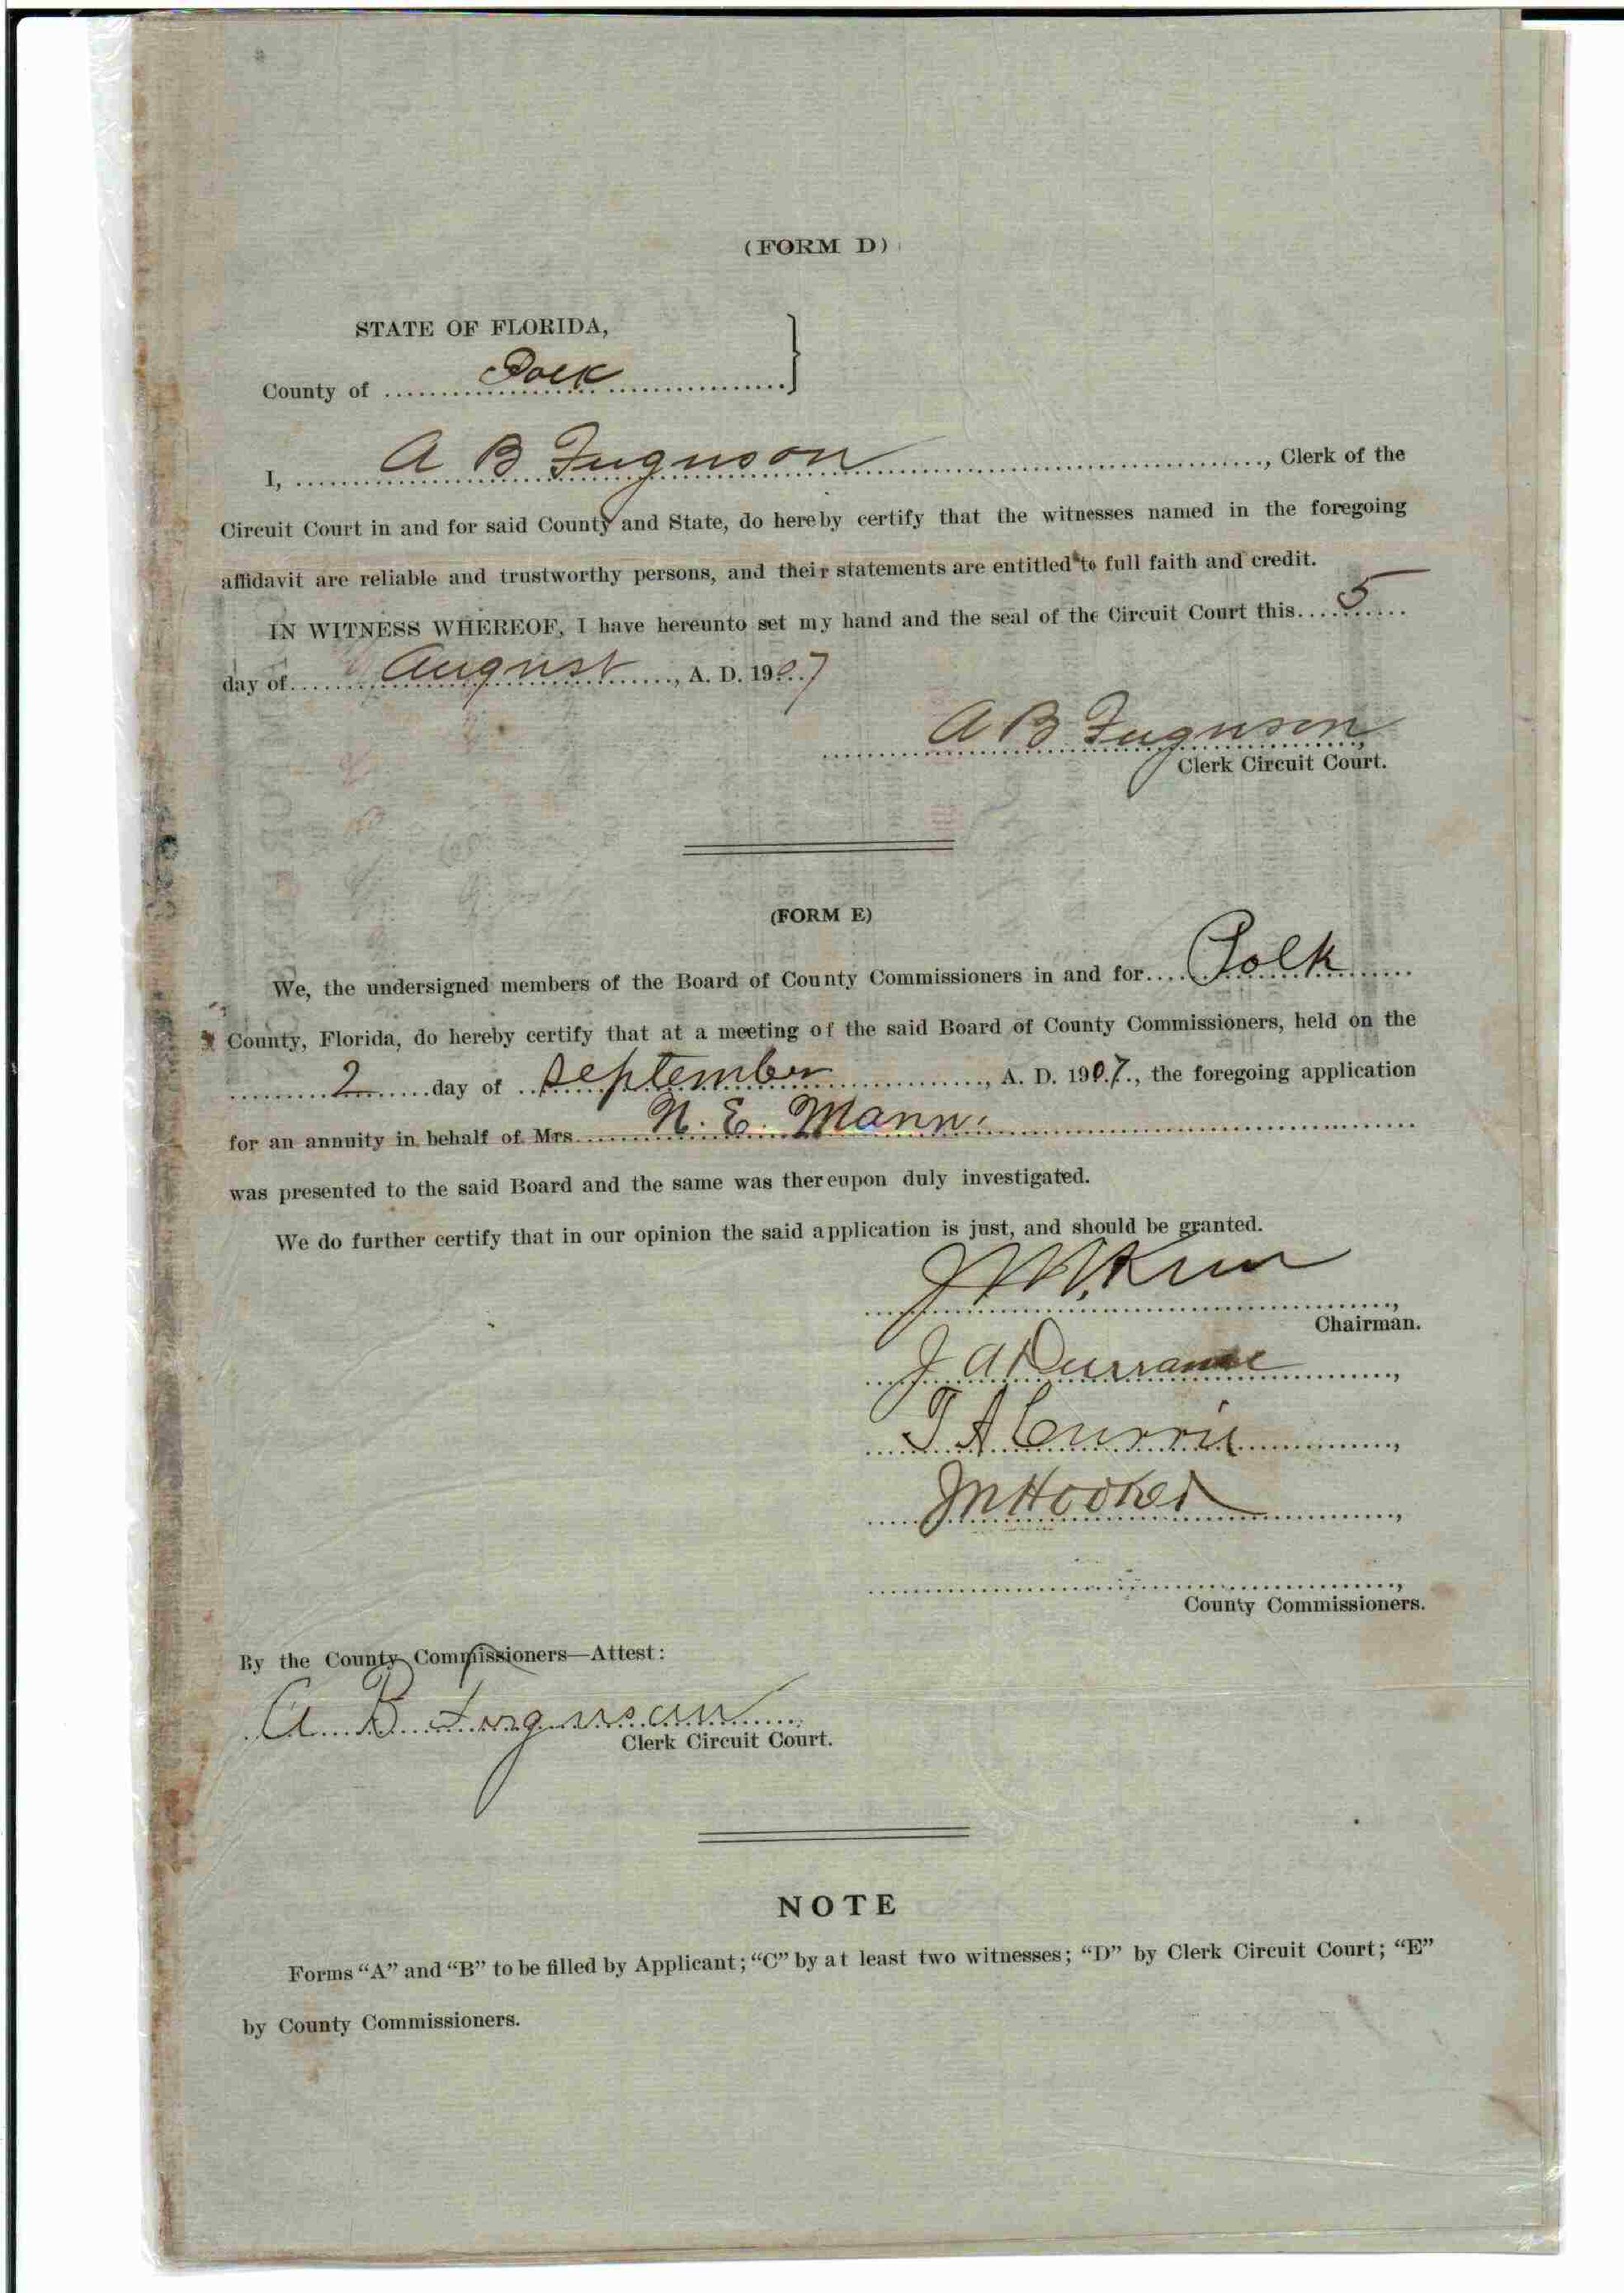 (FORM D)
STATE OF FLORIDA,
County of Polk
I, A B Fuguson, Clerk of the
Circuit Court in and for said County and State, do hereby certify that the witnesses named in the foregoing
affidavit are reliable and trustworthy persons, and their statements are entitled to full faith and credit.
IN WITNESS WHEREOF, I have hereunto set my hand and the seal of the Circuit Court this 5
day of August, A. D. 1907
A B Fuguson
Clerk Circuit Court.
(FORM E)
We, the undersigned members of the Board of County Commissioners in and for Polk
County, Florida, do hereby certify that at a meeting of the said Board of County Commissioners, held on the
2 day of September, A. D. 1907., the foregoing application
for an annuity in behalf of Mrs N. E. Mann
was presented to the said Board and the same was thereupon duly investigated.
We do further certify that in our opinion the said application is just, and should be granted.
Chairman.
J A Durrance
T A Currie
J M Hooker
County Commissioners.
By the County Commissioners—Attest:
A B Ferguson
Clerk Circuit Court.
NOTE
Forms “A” and “B” to be filled by Applicant; “C” by at least two witnesses; “D” by Clerk Circuit Court; “E”
by County Commissioners.